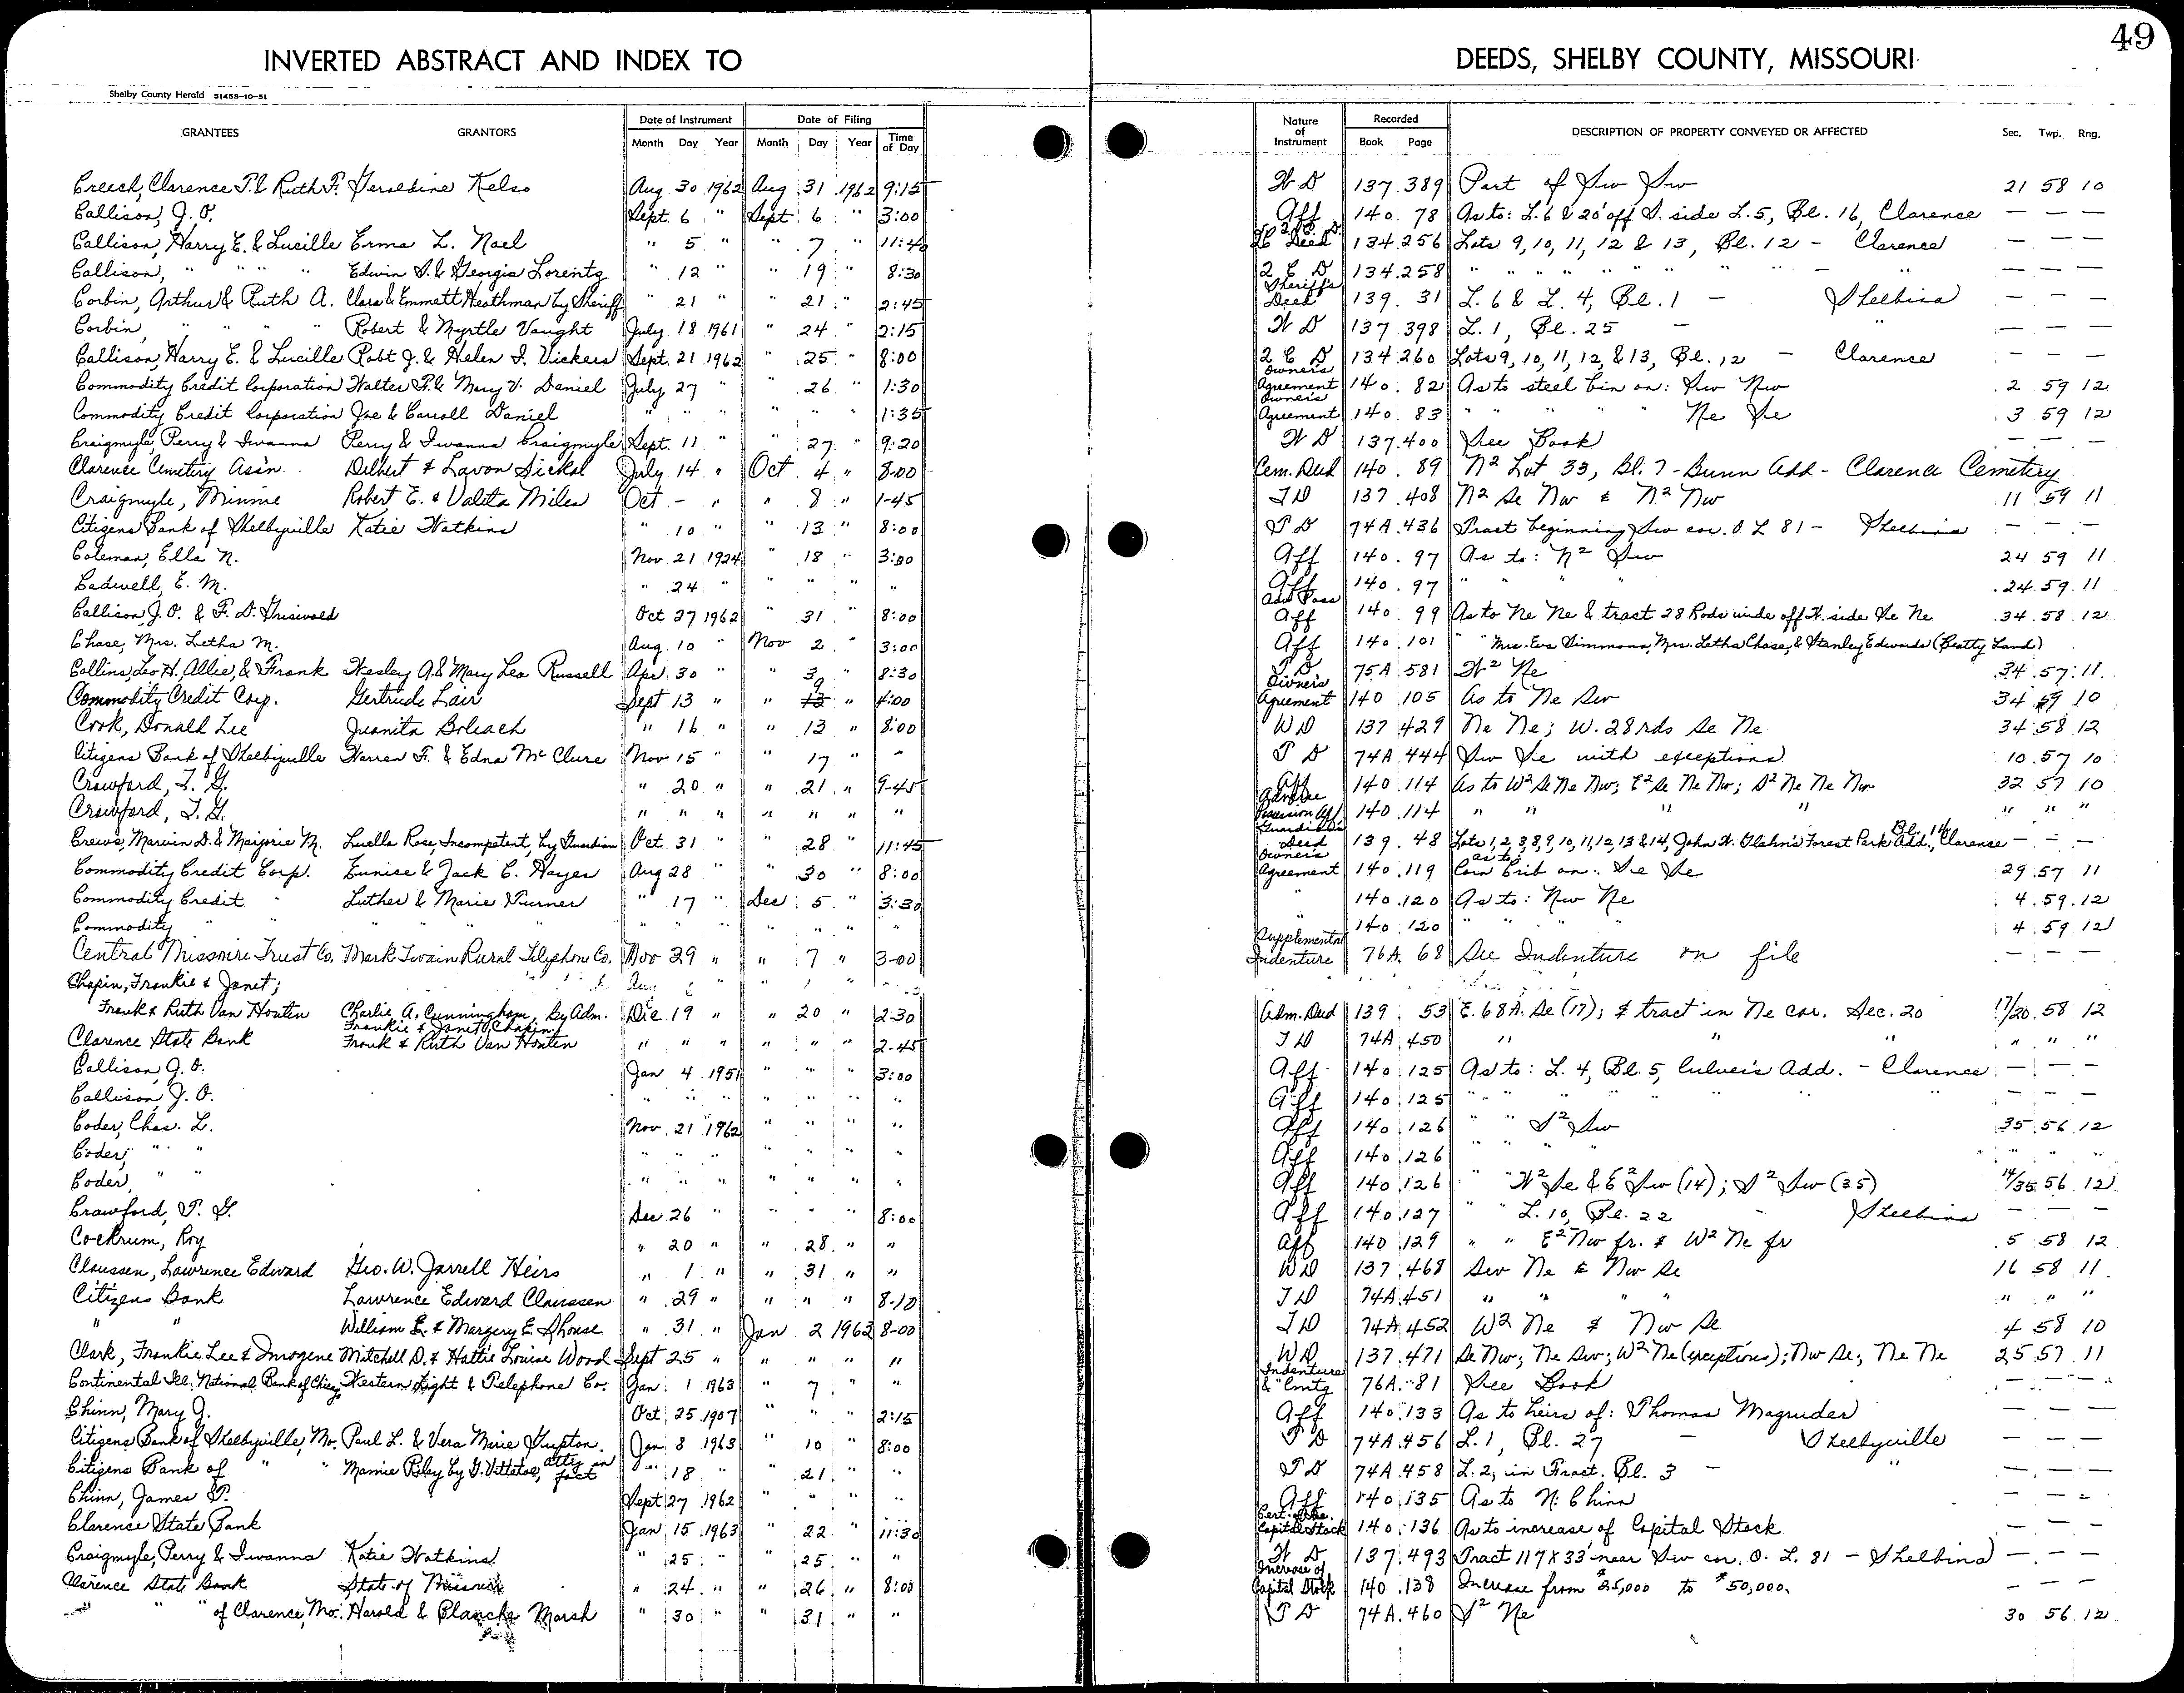 49
INVERTED ABSTRACT AND INDEX TO DEEDS, SHELBY COUNTY, MISSOURI
Shelby County Herald 51458-10-51
GRANTEES GRANTORS Date of Instrument Date of Filing Nature of Instrument Recorded DESCRIPTION OF PROPERTY CONVEYED OR AFFECTED Sec. Twp. Rng.
Month Day Year Month Day Year Time of Day Book Page
Creech, Clarence T. & Ruth F. Geraldine Kelso Aug 30 1962 Aug 31 1962 9:15 W D 137 389 Part of Sw Sw 21 58 10
Callison, J. O. Sept 6 " Sept 6 " 3:00 Aff 140 78 As to: L. 6 & 20' off S. side L. 5, Bl. 16, Clarence — — —
Callison, Harry E. & Lucille Erma L. Noel " 5 " " 7 " 11:40 Deed 134 256 Lots 9, 10, 11, 12 & 13, Bl. 12 - Clarence — — —
Callison, " " " " Edwin S. & Georgia Lorentz " 12 " " 19 " 8:30 2 C D 134 258 " " " " " " " " - " — — —
Corbin, Arthur & Ruth A. Clara & Emmett Heathman by Sheriff " 21 " " 21 " 2:45 Sheriff's Deed 139 31 L. 6 & L. 4, Bl. 1 - Shelbina — — —
Corbin, " " " " Robert & Myrtle Vaught July 18 1961 " 24 " 2:15 W D 137 398 L. 1, Bl. 25 - " — — —
Callison, Harry E. & Lucille Robt J. & Helen I. Vickers Sept. 21 1962 " 25 " 8:00 2 C D 134 260 Lots 9, 10, 11, 12, & 13, Bl. 12 - Clarence — — —
Commodity Credit Corporation Walter F. & Mary V. Daniel July 27 " " 26 " 1:30 Owner's Agreement 140 82 As to steel bin on: Sw Nw 2 59 12
Commodity Credit Corporation Joe & Carroll Daniel " " " " " " 1:35 Owner's Agreement 140 83 " " " " Ne Se 3 59 12
Craigmyle, Perry & Iwanna Perry & Iwanna Craigmyle Sept. 11 " " 27 " 9:20 W D 137 400 See Book — — —
Clarence Cemetery Ass'n. Delbert & Lavon Sickal July 14 " Oct 4 " 8:00 Cem. Deed 140 89 N² Lot 33, Bl. 7 - Bunn Add - Clarence Cemetery
Craigmyle, Minnie Robert E. & Valeta Miles Oct - " " 8 " 1-45 T D 137 408 N² Se Nw & N² Nw 11 59 11
Citizens Bank of Shelbyville Katie Watkins " 10 " " 13 " 8:00 T D 74A 436 Tract beginning Sw cor. O L 81 - Shelbina — — —
Coleman, Ella N. Nov 21 1924 " 18 " 3:00 Aff 140 97 As to: N² Sw 24 59 11
Cadwell, E. M. " 24 " " " " " Aff 140 97 " " " 24 59 11
Callison, J. O. & F. D. Griswold Oct 27 1962 " 31 " 8:00 Adv Poss Aff 140 99 As to Ne Ne & tract 28 Rods wide off W. side Se Ne 34 58 12
Chase, Mrs. Letha M. Aug. 10 " Nov 2 " 3:00 Aff 140 101 " " Mrs. Eva Simmons, Mrs. Letha Chase, & Stanley Edwards (Beatty Land)
Collins, Leo H. Allie, & Frank Wesley A. & Mary Lea Russell Apr 30 " " 3 " 8:30 T D 75A 581 W² Ne 34 57 11
Commodity Credit Corp. Gertrude Lair Sept 13 " " 9 " 4:00 Owner's Agreement 140 105 As to Ne Sw 34 59 10
Cook, Donald Lee Juanita Boleach " 16 " " 13 " 8:00 WD 137 429 Ne Ne; W. 28 rds Se Ne 34 58 12
Citizens Bank of Shelbyville Warren F. & Edna McClure Nov 15 " " 17 " " T D 74A 444 Sw Se with exceptions 10 57 10
Crawford, T. G. " 20 " " 21 " 9-45 Aff 140 114 As to W² Se Ne Nw; E² Se Ne Nw; S² Ne Ne Nw 32 57 10
Crawford, T. G. " " " " " " " Adverse Possession Aff 140 114 " " " " " " "
Crews, Marvin D. & Marjorie M. Luella Rose, Incompetent, by Guardian Oct. 31 " " 28 " 11:45 Guardian's Deed 139 48 Lots 1, 2, 3, 8, 9, 10, 11, 12, 13 & 14, Bl. 14 John W. Glahn's Forest Park Add., Clarence — — —
Commodity Credit Corp. Eunice & Jack C. Hayes Aug 28 " " 30 " 8:00 Owner's Agreement 140 119 as to Corn Crib on: Se Se 29 57 11
Commodity Credit " Luther & Marie Turner " 17 " Dec 5 " 3:30 " 140 120 As to: Nw Ne 4 59 12
Commodity " " " " " " " " " " " 140 120 " " " " 4 59 12
Central Missouri Trust Co. Mark Twain Rural Telephone Co. Nov 29 " " 7 " 3-00 Supplemental Indenture 76A 68 See Indenture on file — — —
Chapin, Frankie & Janet;
Frank & Ruth Van Houten Charlie A. Cunningham, By Adm. Dec 19 " " 20 " 2:30 Adm. Deed 139 53 E. 68A. Se (17); & tract in Ne cor. Sec. 20 17/20 58 12
Clarence State Bank Frankie & Janet Chapin Frank & Ruth Van Houten " " " " " " 2-45 T D 74A 450 " " " " " "
Callison, J. O. Jan 4 1951 " " " 3:00 Aff 140 125 As to: L. 4, Bl. 5, Culver's Add. - Clarence — — —
Callison, J. O. " " " " " " " Aff 140 125 " " " " " " " — — —
Coder, Chas. L. Nov. 21 1962 " " " " Aff 140 126 " " S² Sw 35 56 12
Coder, " " " " " " " " " Aff 140 126 " " " " " " "
Coder, " " " " " " " " " Aff 140 126 " " W² Se & E² Sw (14); S² Sw (35) 14/35 56 12
Crawford, T. G. Dec. 26 " " " " 8:00 Aff 140 127 " " L. 10, Bl. 22 - Shelbina — — —
Cockrum, Roy " 20 " " 28 " " Aff 140 129 " " E² Nw fr. & W² Ne fr 5 58 12
Claussen, Lawrence Edward Geo. W. Jarrell Heirs " 1 " " 31 " " WD 137 468 Sw Ne & Nw Se 16 58 11
Citizens Bank Lawrence Edward Claussen " 29 " " " " 8-10 T D 74A 451 " " " " " " "
" " William E. & Margery E. Shouse " 31 " Jan 2 1963 8-00 T D 74A 452 W² Ne & Nw Se 4 58 10
Clark, Frankie Lee & Imogene Mitchell D. & Hattie Louise Wood Sept 25 " " " " " WD 137 471 Se Nw; Ne Sw; W² Ne (exceptions); Nw Se; Ne Ne 25 57 11
Continental Ill. National Bank of Chicago Western Light & Telephone Co. Jan. 1 1963 " 7 " " Indenture & Cmtg 76A 81 See Book — — —
Chinn, Mary J. Oct. 25 1907 " " " 2:15 Aff 140 133 As to heirs of: Thomas Magruder — — —
Citizens Bank of Shelbyville, Mo. Paul L. & Vera Marie Gupton Jan 8 1963 " 10 " 8:00 T D 74A 456 L. 1, Bl. 27 - Shelbyville — — —
Citizens Bank of " " Mamie Roby by G. Vittetoe, atty in fact " 18 " " 21 " " T D 74A 458 L. 2, in Fract. Bl. 3 - " — — —
Chinn, James T. Sept 27 1962 " " " " Aff 140 135 As to N. Chinn — — —
Clarence State Bank Jan 15 1963 " 22 " 11:30 Capital Stock 140 136 As to increase of Capital Stock — — —
Craigmyle, Perry & Iwanna Katie Watkins " 25 " " 25 " " W D 137 493 Tract 117 X 33' near Sw cor. O. L. 81 - Shelbina — — —
Clarence State Bank State of Missouri " 24 " " 26 " 8:00 Increase of Capital Stock 140 138 Increase from $25,000 to $50,000. — — —
" " " of Clarence, Mo. Harold & Blanche Marsh " 30 " " 31 " " T D 74A 460 S² Ne 30 56 12